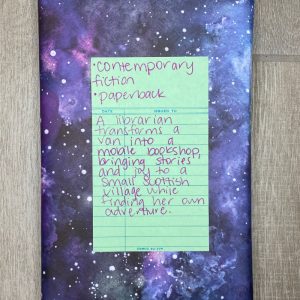 •contemporary
fiction
•paperback
DATE ISSUED TO
A librarian
transforms a
van into a
mobile bookshop,
bringing stories
and joy to a
small Scottish
village while
finding her own
adventure.